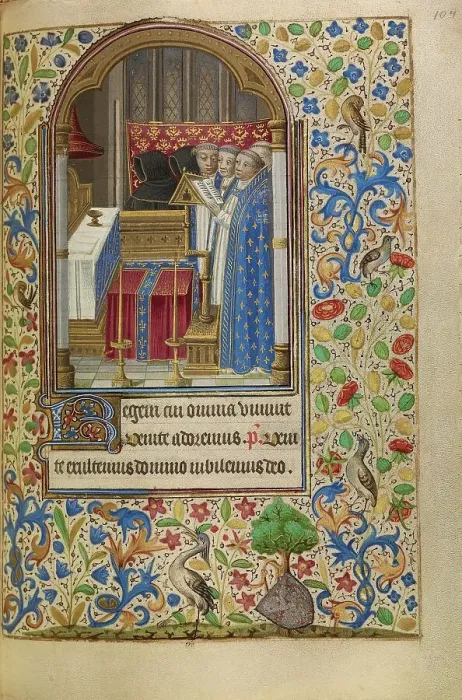 104
Regem cui omnia viuunt
Venite adoremus. p̄. Veni
te exultemus domino iubilemus deo.